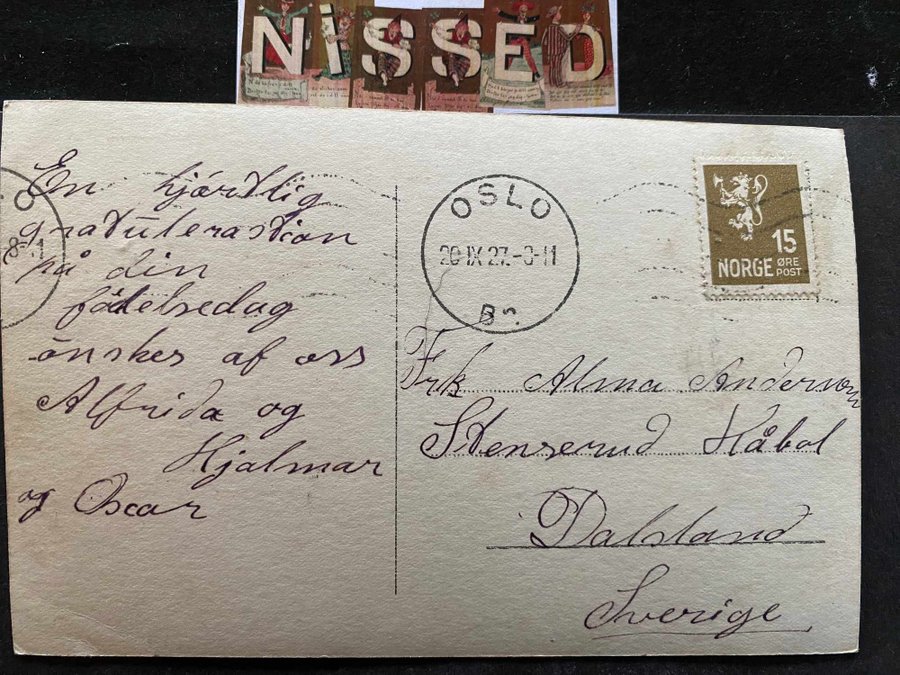 NISSED
En hjärdlig
gratúlerastion
på din
födelsedag
önskes af oss
Alfrida og
Hjalmar
og Oscar
OSLO
20 IX 27.-8-11
8-11
15
NORGE ØRE
POST
Frk Alma Anderson
Stenserud Håbol
Dalsland
Sverige